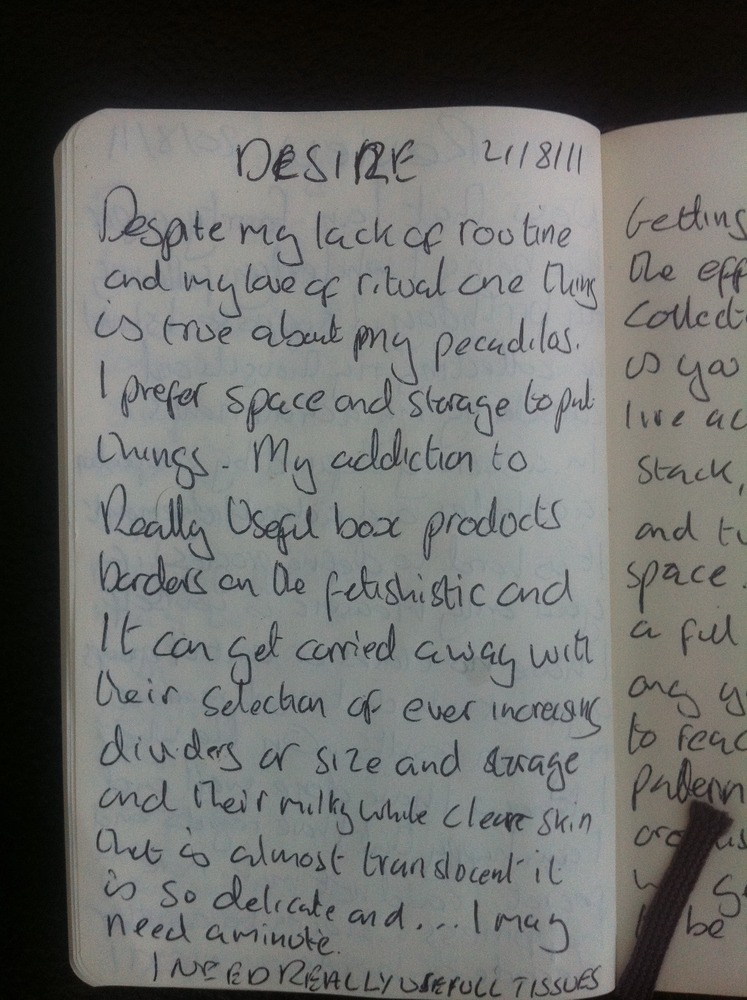 DESIRE 21/8/11
Despite my lack of routine
and my love of ritual one thing
is true about my pecadilos.
I prefer space and storage to put
things. My addiction to
Really Useful box products
borders on the fetishistic and
It can get carried away with
their selection of ever increasing
dividers or size and storage
and their milky while clear skin
that is almost translocent it
is so delicate and... I may
need a minute.
I NEED REALLY USEFULL TISSUES
Getting
the eff
collect
is you
live ac
stack,
and tu
space.
a full
any y
to reac
pattern
be